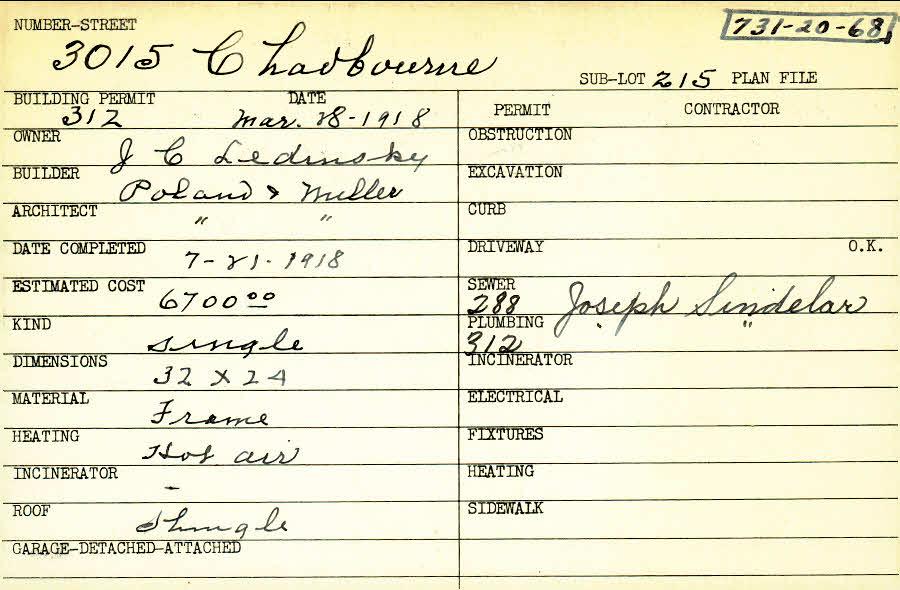 NUMBER-STREET 731-20-68
3015 Chadbourne
SUB-LOT 215 PLAN FILE
BUILDING PERMIT DATE
312 Mar. 28-1918
PERMIT CONTRACTOR
OWNER J C Ledinsky
OBSTRUCTION
BUILDER Poland & Miller
EXCAVATION
ARCHITECT " "
CURB
DATE COMPLETED 7-21-1918
DRIVEWAY O.K.
ESTIMATED COST 6700 00
SEWER
288 Joseph Sindelar
KIND single
PLUMBING " "
312
DIMENSIONS 32 X 24
INCINERATOR
MATERIAL Frame
ELECTRICAL
HEATING Hot air
FIXTURES
INCINERATOR -
HEATING
ROOF Shingle
SIDEWALK
GARAGE-DETACHED-ATTACHED